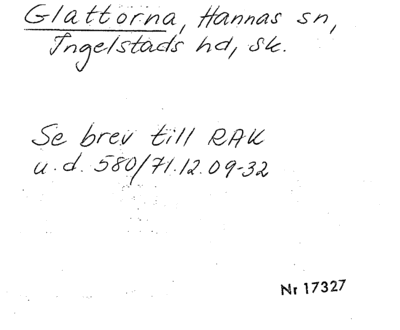 Glattorna, Hannas sn,
Ingelstads hd, sk.
Se brev till RAK
u.d. 580/71.12.09-32
Nr 17327